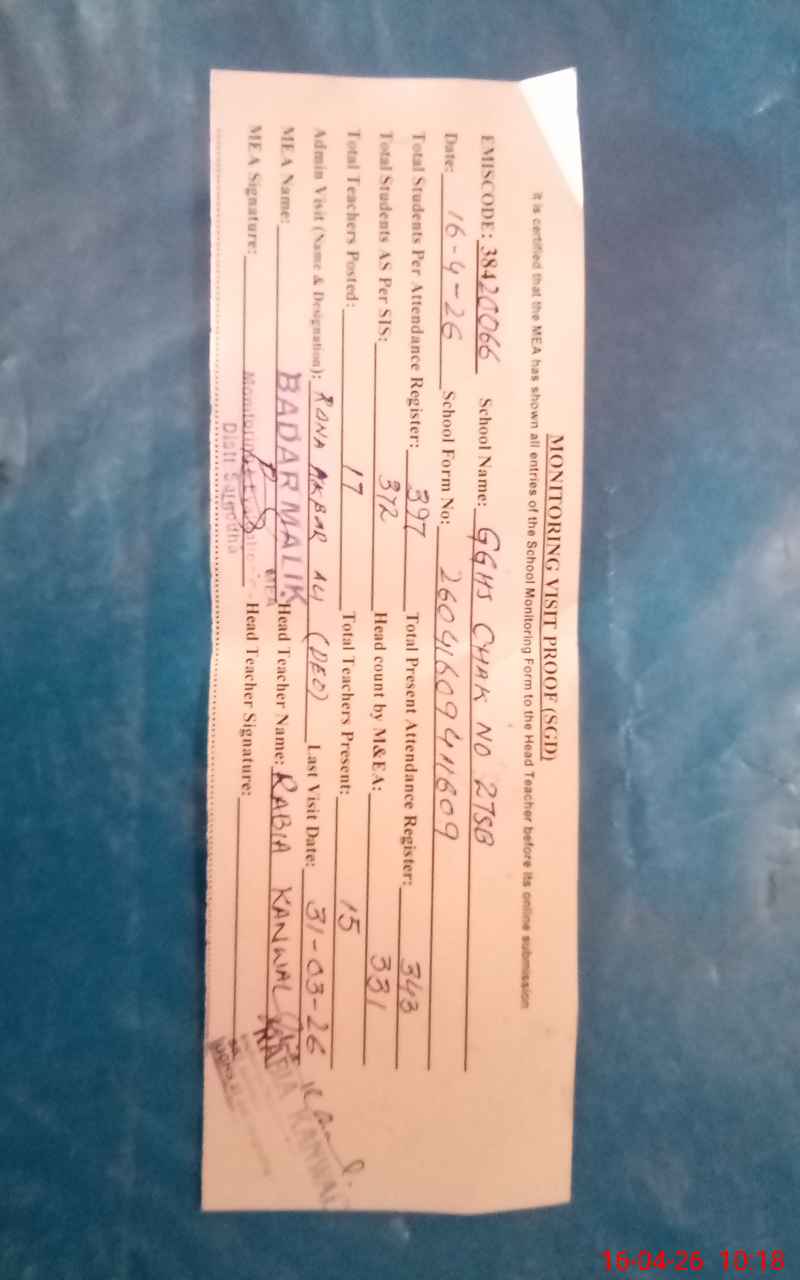 MONITORING VISIT PROOF (SGD)
It is certified that the MEA has shown all entries of the School Monitoring Form to the Head Teacher before its online submission
EMISCODE: 38420066 School Name: GGHS CHAK NO 27SB
Date: 16-4-26 School Form No: 26041609411609
Total Students Per Attendance Register: 397 Total Present Attendance Register: 343
Total Students AS Per SIS: 372 Head count by M&EA: 331
Total Teachers Posted: 17 Total Teachers Present: 15
Admin Visit (Name & Designation): RANA AKBAR ALI (DEO) Last Visit Date: 31-03-26
MEA Name: BADAR MALIK MEA Head Teacher Name: RABIA KANWAL
MEA Signature: Head Teacher Signature:
Distt Sargodha
RABIA KANWAL
16-04-26 10:18